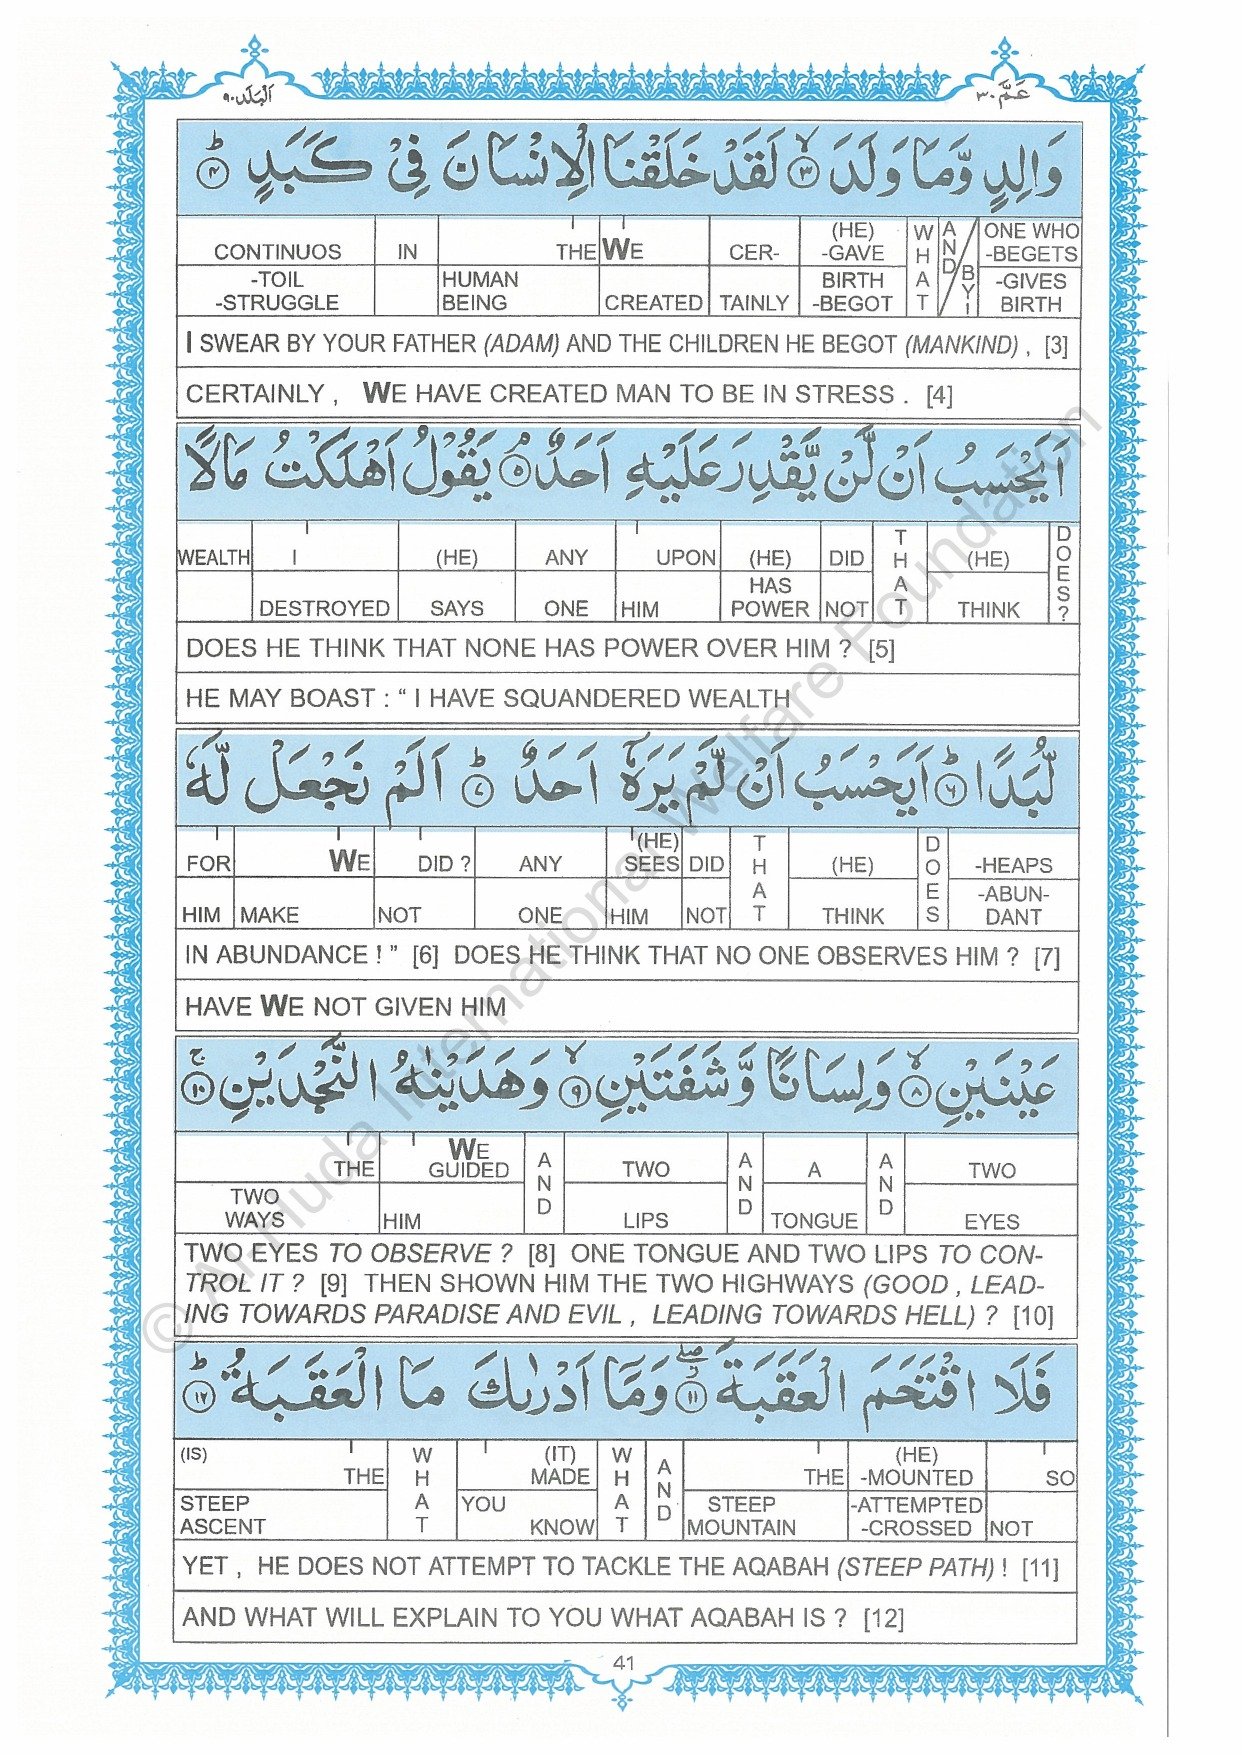 اَلْبَلَد ٩٠
عَمَّ ٣٠
وَالِدٍ وَّمَا وَلَدَ ۙ﴿۳﴾ لَقَدْ خَلَقْنَا الْاِنْسَانَ فِیْ كَبَدٍ ؕ﴿۴﴾
CONTINUOS IN THE WE CER- (HE) -GAVE WHAT AND BY! ONE WHO -BEGETS
-TOIL -STRUGGLE HUMAN BEING CREATED TAINLY BIRTH -BEGOT -GIVES BIRTH
I SWEAR BY YOUR FATHER (ADAM) AND THE CHILDREN HE BEGOT (MANKIND) , [3]
CERTAINLY , WE HAVE CREATED MAN TO BE IN STRESS . [4]
اَيَحْسَبُ اَنْ لَّنْ يَّقْدِرَ عَلَيْهِ اَحَدٌ ۘ﴿۵﴾ يَقُوْلُ اَهْلَكْتُ مَالًا
WEALTH I (HE) ANY UPON (HE) DID THAT (HE) DOES?
DESTROYED SAYS ONE HIM HAS POWER NOT THINK
DOES HE THINK THAT NONE HAS POWER OVER HIM ? [5]
HE MAY BOAST : “ I HAVE SQUANDERED WEALTH
لُّبَدًا ؕ﴿۶﴾ اَيَحْسَبُ اَنْ لَّمْ يَرَهٗۤ اَحَدٌ ؕ﴿۷﴾ اَلَمْ نَجْعَلْ لَّهٗ
FOR WE DID ? ANY (HE) SEES DID THAT (HE) DOES -HEAPS
HIM MAKE NOT ONE HIM NOT THINK -ABUN- DANT
IN ABUNDANCE ! ” [6] DOES HE THINK THAT NO ONE OBSERVES HIM ? [7]
HAVE WE NOT GIVEN HIM
عَيْنَيْنِ ۙ﴿۸﴾ وَلِسَانًا وَّشَفَتَيْنِ ۙ﴿۹﴾ وَهَدَيْنٰهُ النَّجْدَيْنِ ۚ﴿۱۰﴾
THE WE GUIDED AND TWO AND A AND TWO
TWO WAYS HIM LIPS TONGUE EYES
TWO EYES TO OBSERVE ? [8] ONE TONGUE AND TWO LIPS TO CON-
TROL IT ? [9] THEN SHOWN HIM THE TWO HIGHWAYS (GOOD , LEAD-
ING TOWARDS PARADISE AND EVIL , LEADING TOWARDS HELL) ? [10]
فَلَا اقْتَحَمَ الْعَقَبَةَ ۖ﴿۱۱﴾ وَمَاۤ اَدْرٰىكَ مَا الْعَقَبَةُ ؕ﴿۱۲﴾
(IS) THE WHAT (IT) MADE WHAT AND THE (HE) -MOUNTED SO
STEEP ASCENT YOU KNOW STEEP MOUNTAIN -ATTEMPTED -CROSSED NOT
YET , HE DOES NOT ATTEMPT TO TACKLE THE AQABAH (STEEP PATH) ! [11]
AND WHAT WILL EXPLAIN TO YOU WHAT AQABAH IS ? [12]
41
© Al-Huda International Welfare Foundation